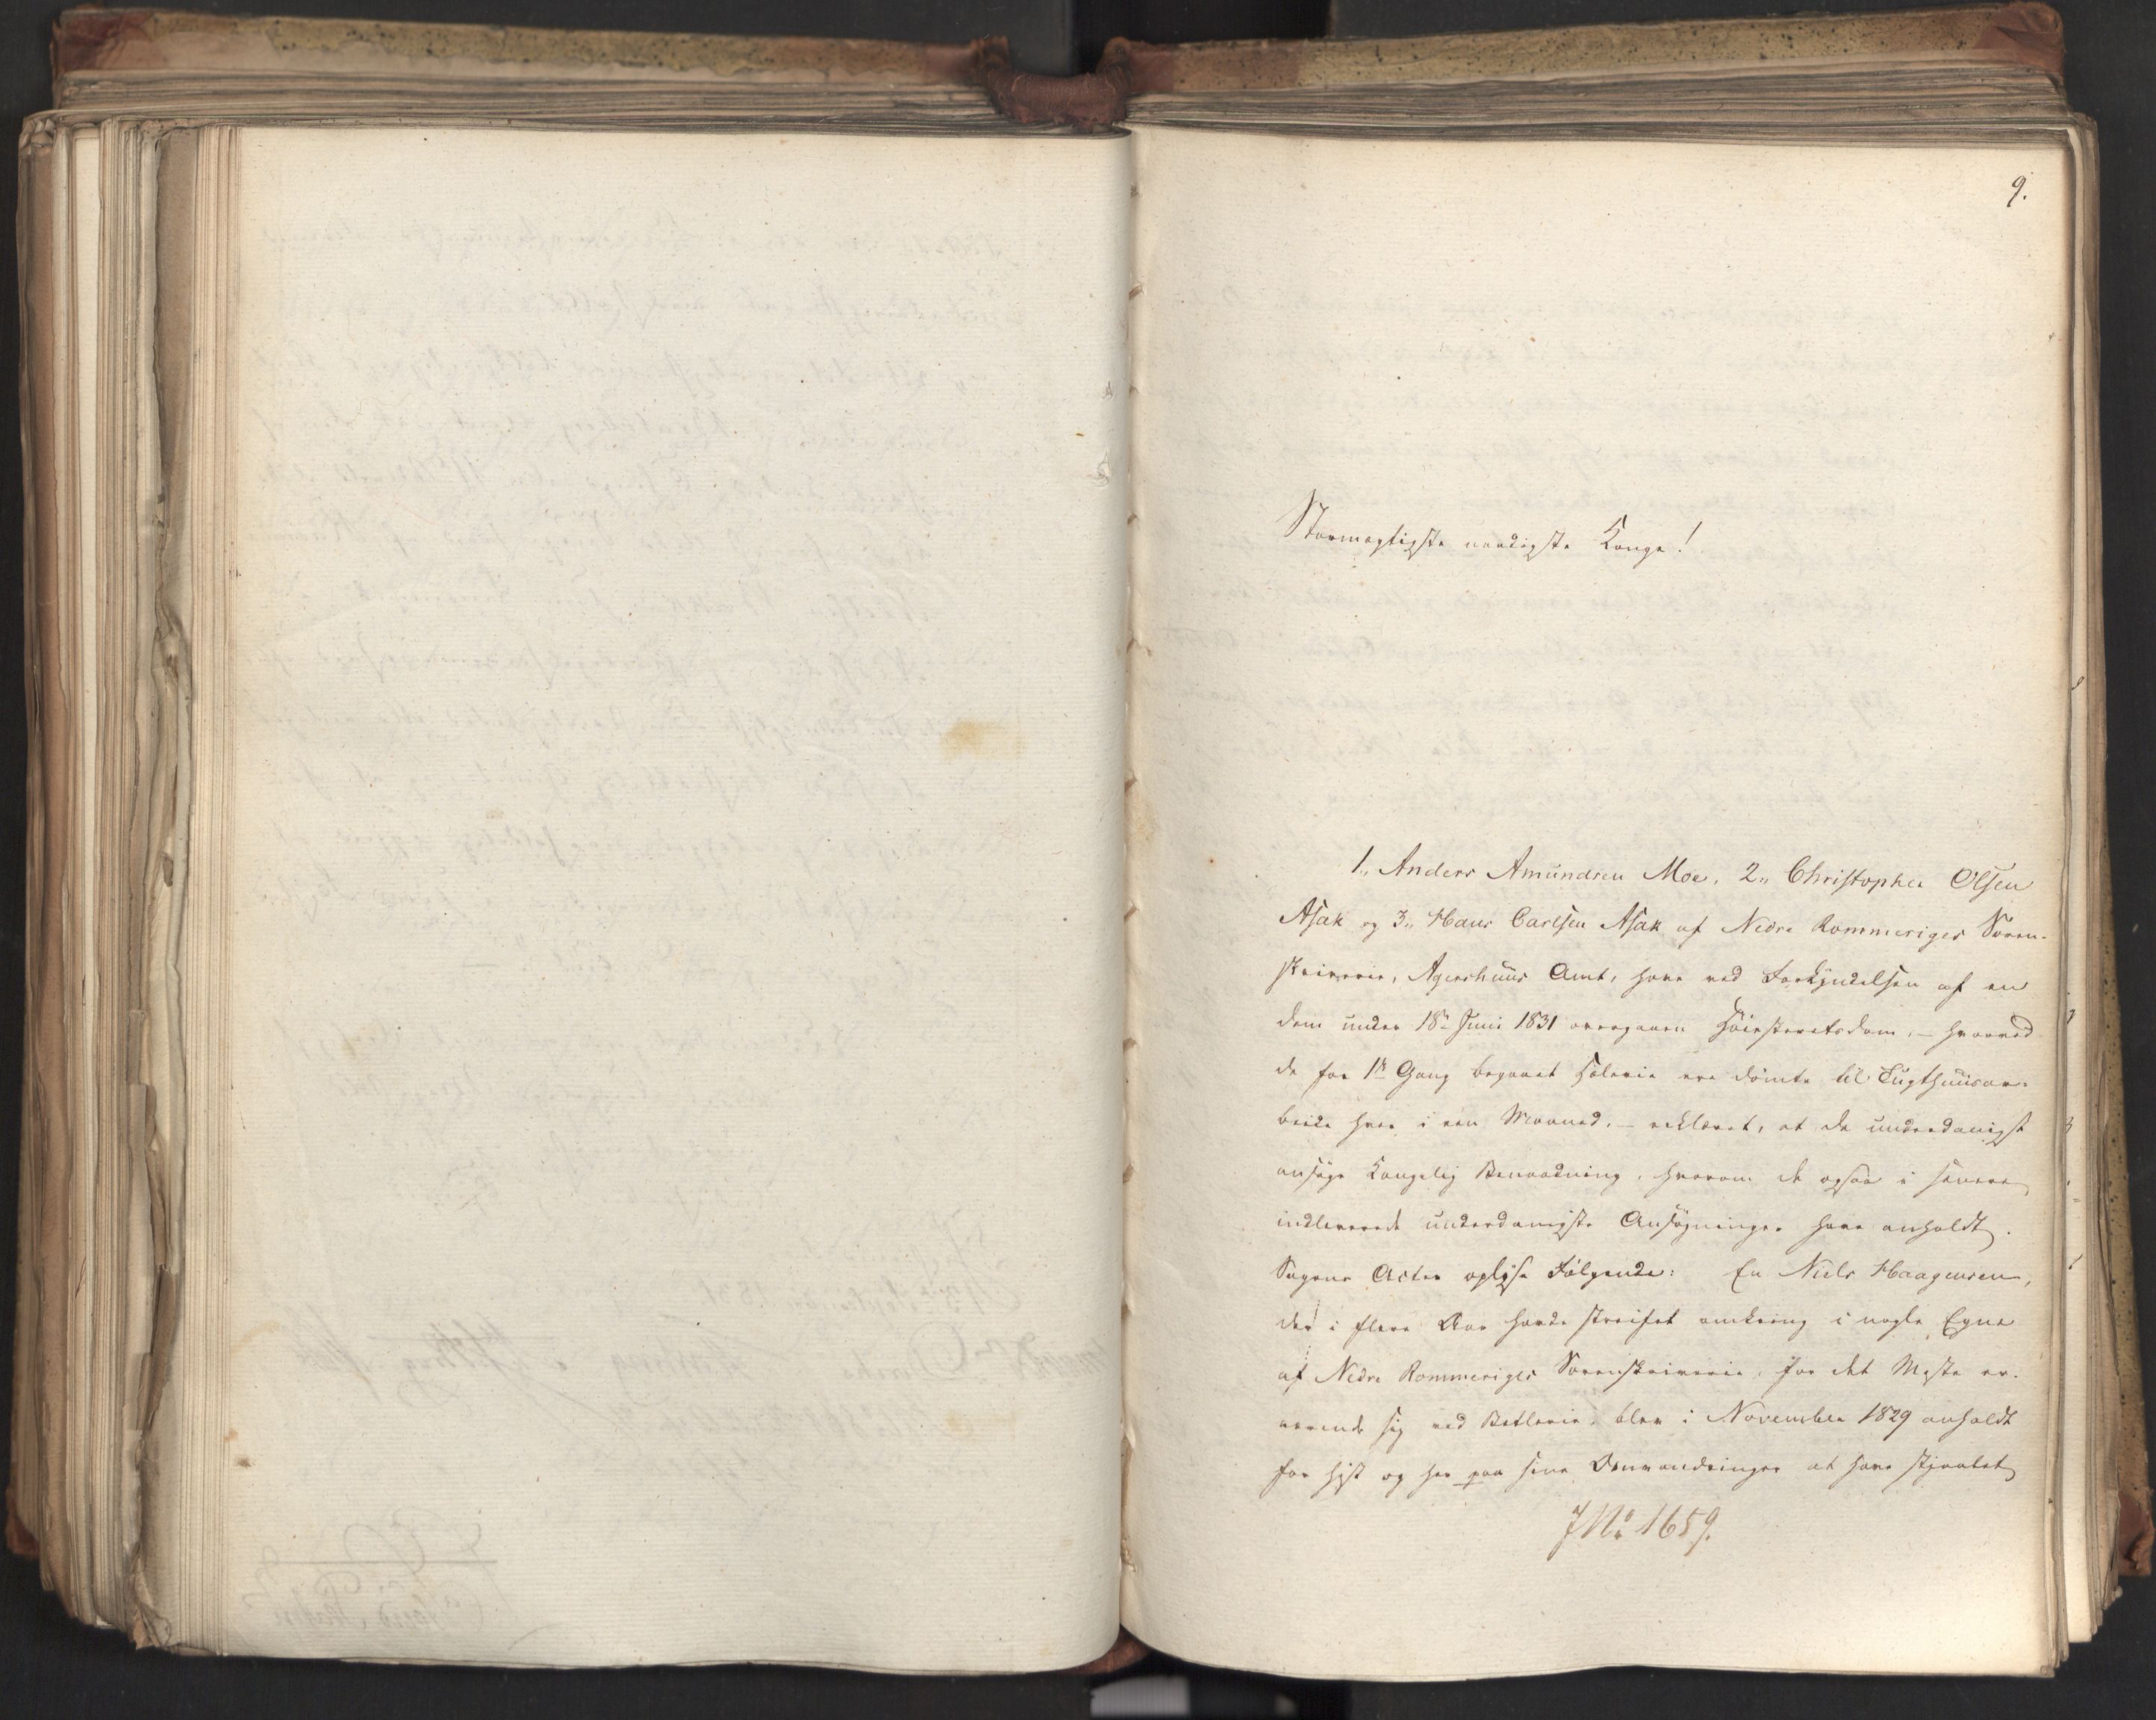 9.
Stormægtigste naadigste Konge!
1., Anders Amundsen Moe, 2., Christopher Olsen
Asak og 3., Hans Carlsen Asak af Nedre Rommeriges Soren-
skriverie, Agershuus Amt, have ved Forkyndelsen af en
dem under 18de Juni 1831 overgaaen Høiesteretsdom, – hvorved
de for 1ste Gang begaaet Hæleri ere dømte til Tugthuusar-
beide hver i een Maaned, – erklæret, at de underdanigst
ansøge Kongelig Benaadning, hvorom de ogsaa i senere
indleverede underdanigste Ansøgninger have anholdt.
Sagens Acter oplyse Følgende: En Niels Haagensen,
der i flere Aar havde streifet omkring i nogle Egne
af Nedre Rommeriges Sorenskriverie, for det Meste er-
nærende sig ved Betlerie, blev i November 1829 anholdt
for hist og her paa sine Omvandringer at have stjaalet
JNo 1659.